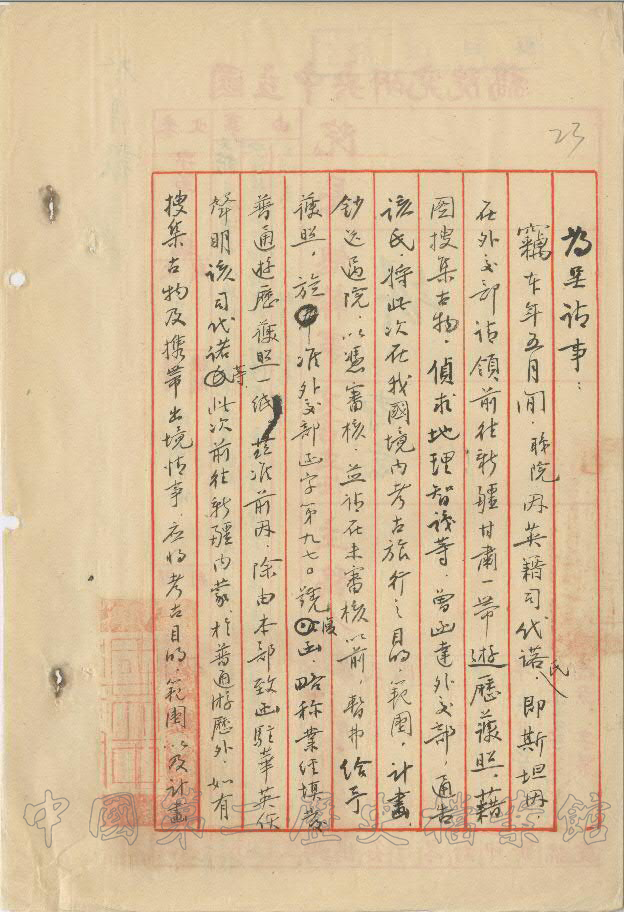 23
為呈請事：
竊本年五月間，職院因英籍司代諾氏即斯坦因，
在外交部請領前往新疆甘肅一帶遊歷護照，藉
圖搜集古物，偵求地理智識等，曾函達外交部，通告
該氏，將此次在我國境內考古旅行之目的，範圍，計畫，
鈔送過院，以憑審核，並請在未審核以前，暫弗給予
護照，旋准外交部函字第九七〇號復函，略稱業經填發
普通遊歷護照一紙，茲准前因，除由本部致函駐華英使
聲明該司代諾等此次前往新疆內蒙，於普通游歷外，如有
搜集古物及攜帶出境情事，應將考古目的，範圍，以及計畫
中國第二歷史檔案館
國立中央研究院稿